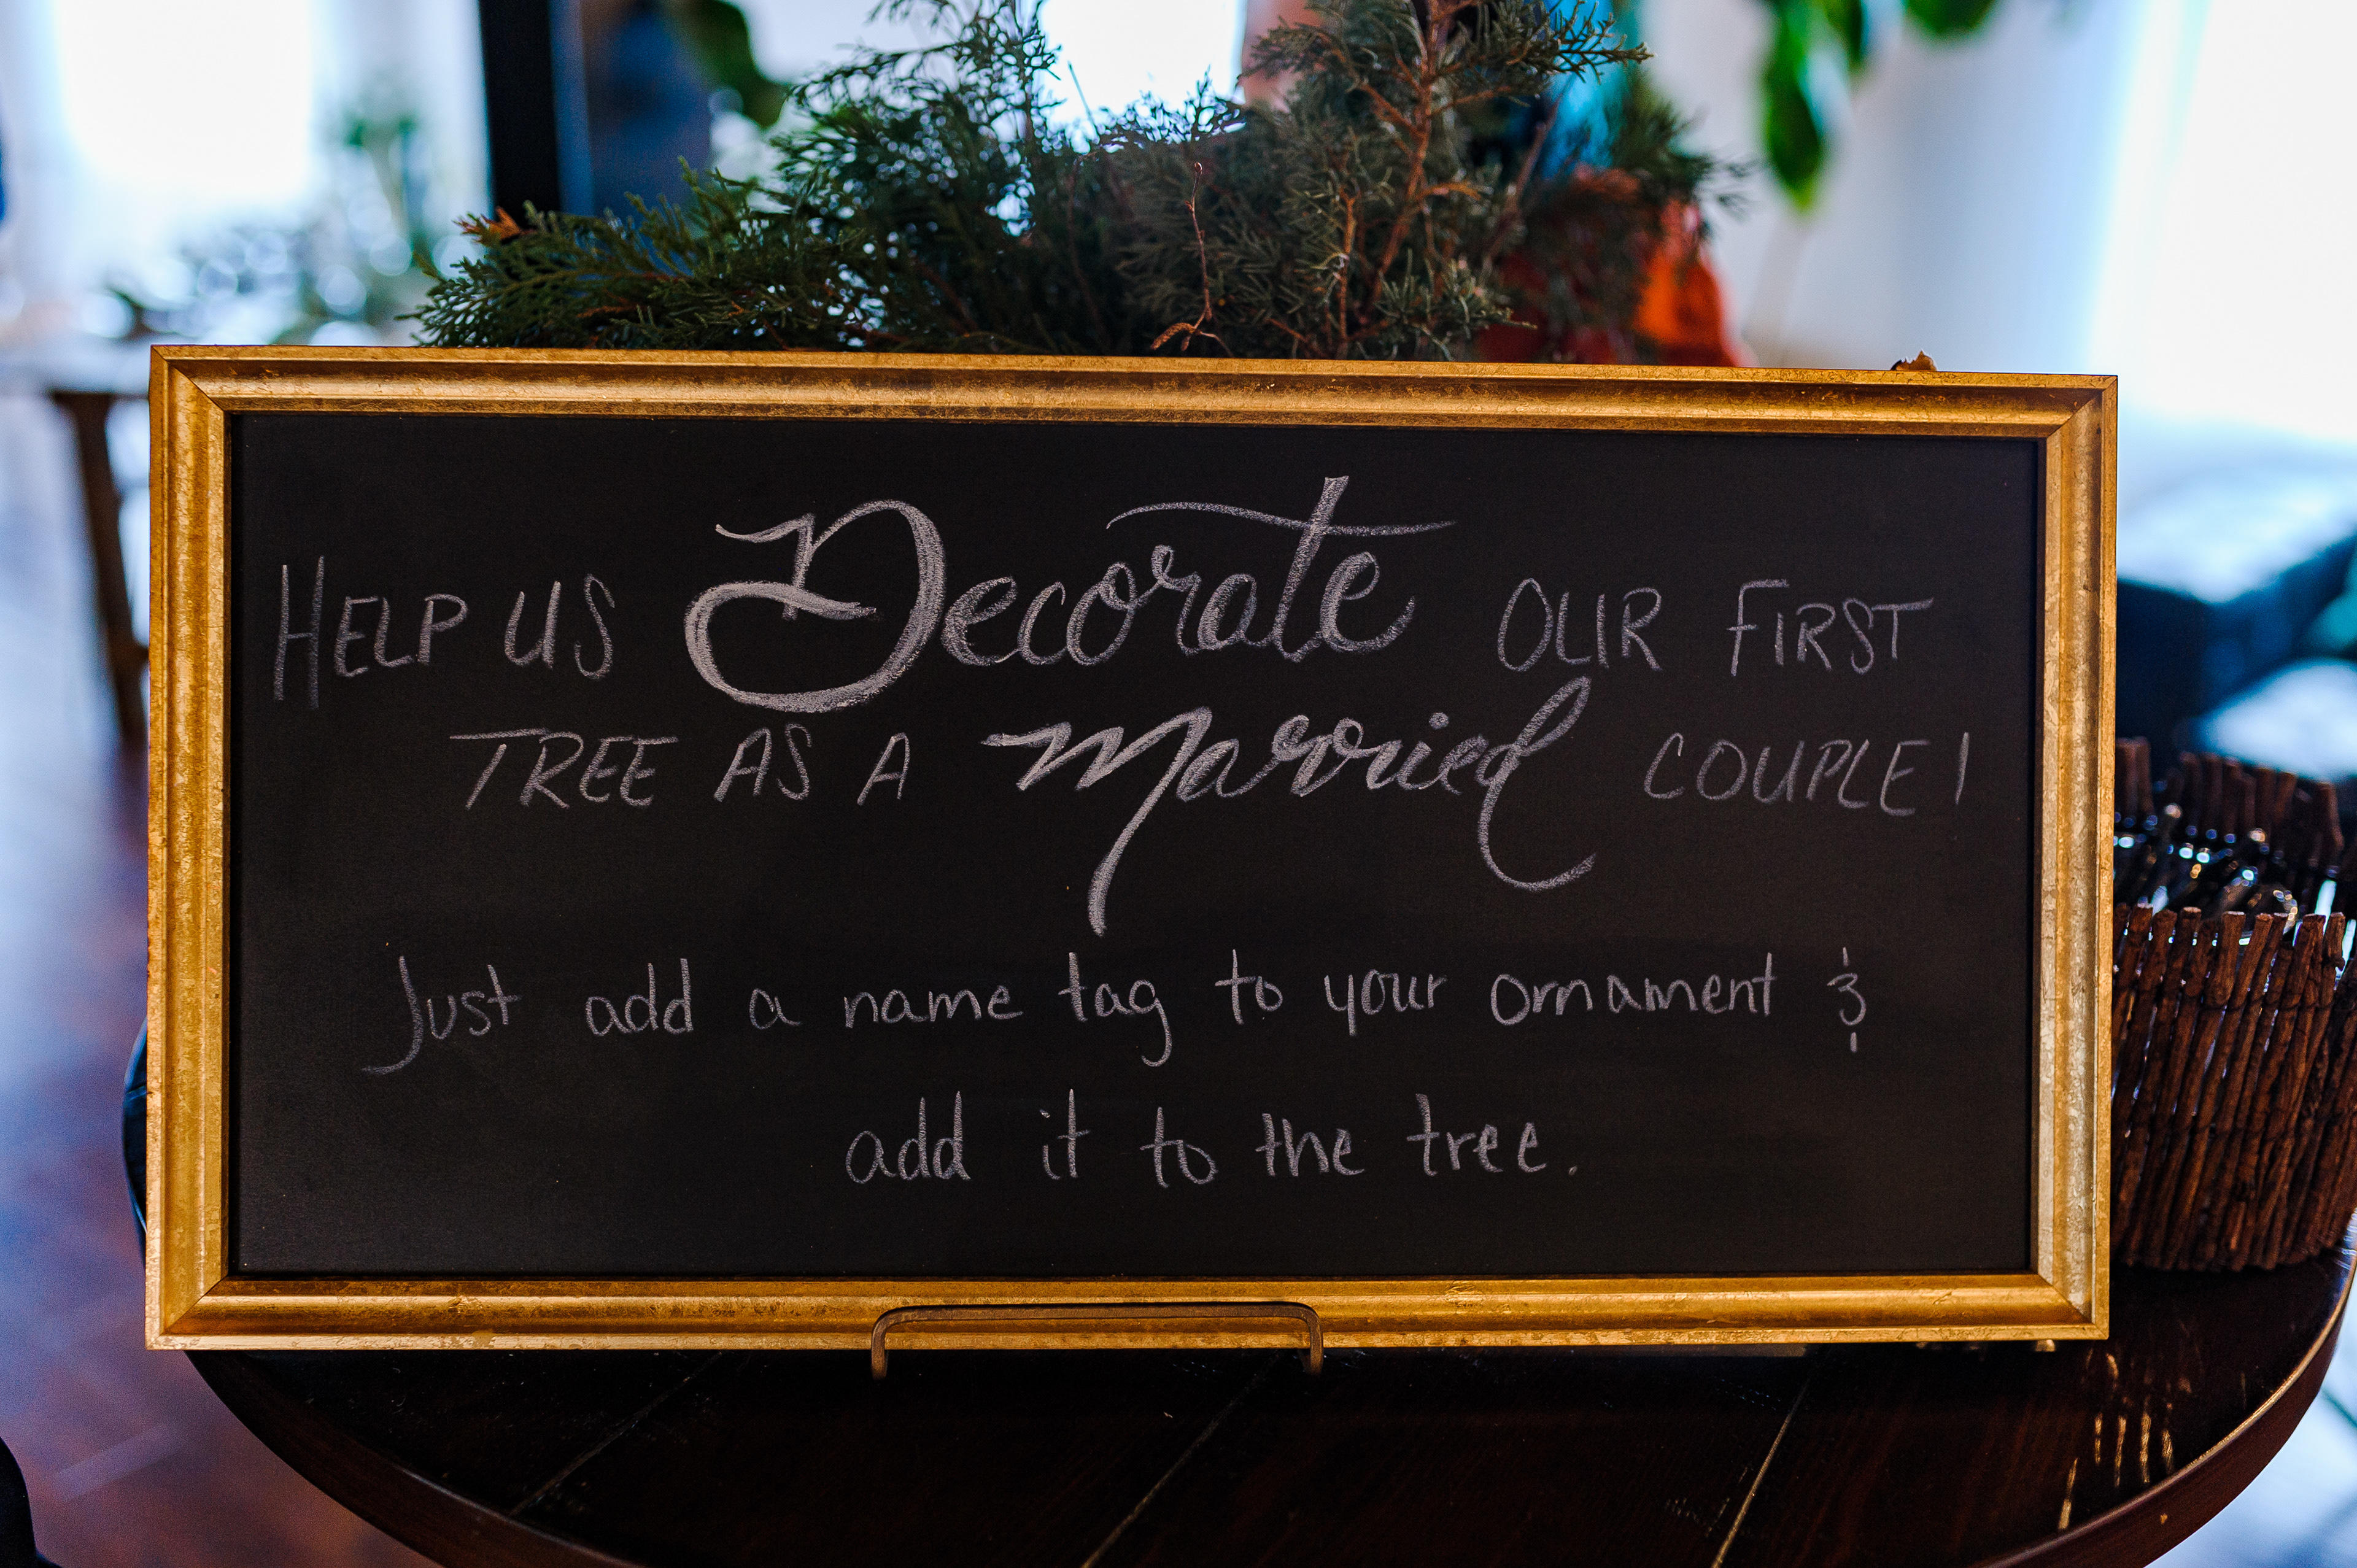 HELP US Decorate OUR FIRST
TREE AS A Married COUPLE!
Just add a name tag to your ornament &
add it to the tree.